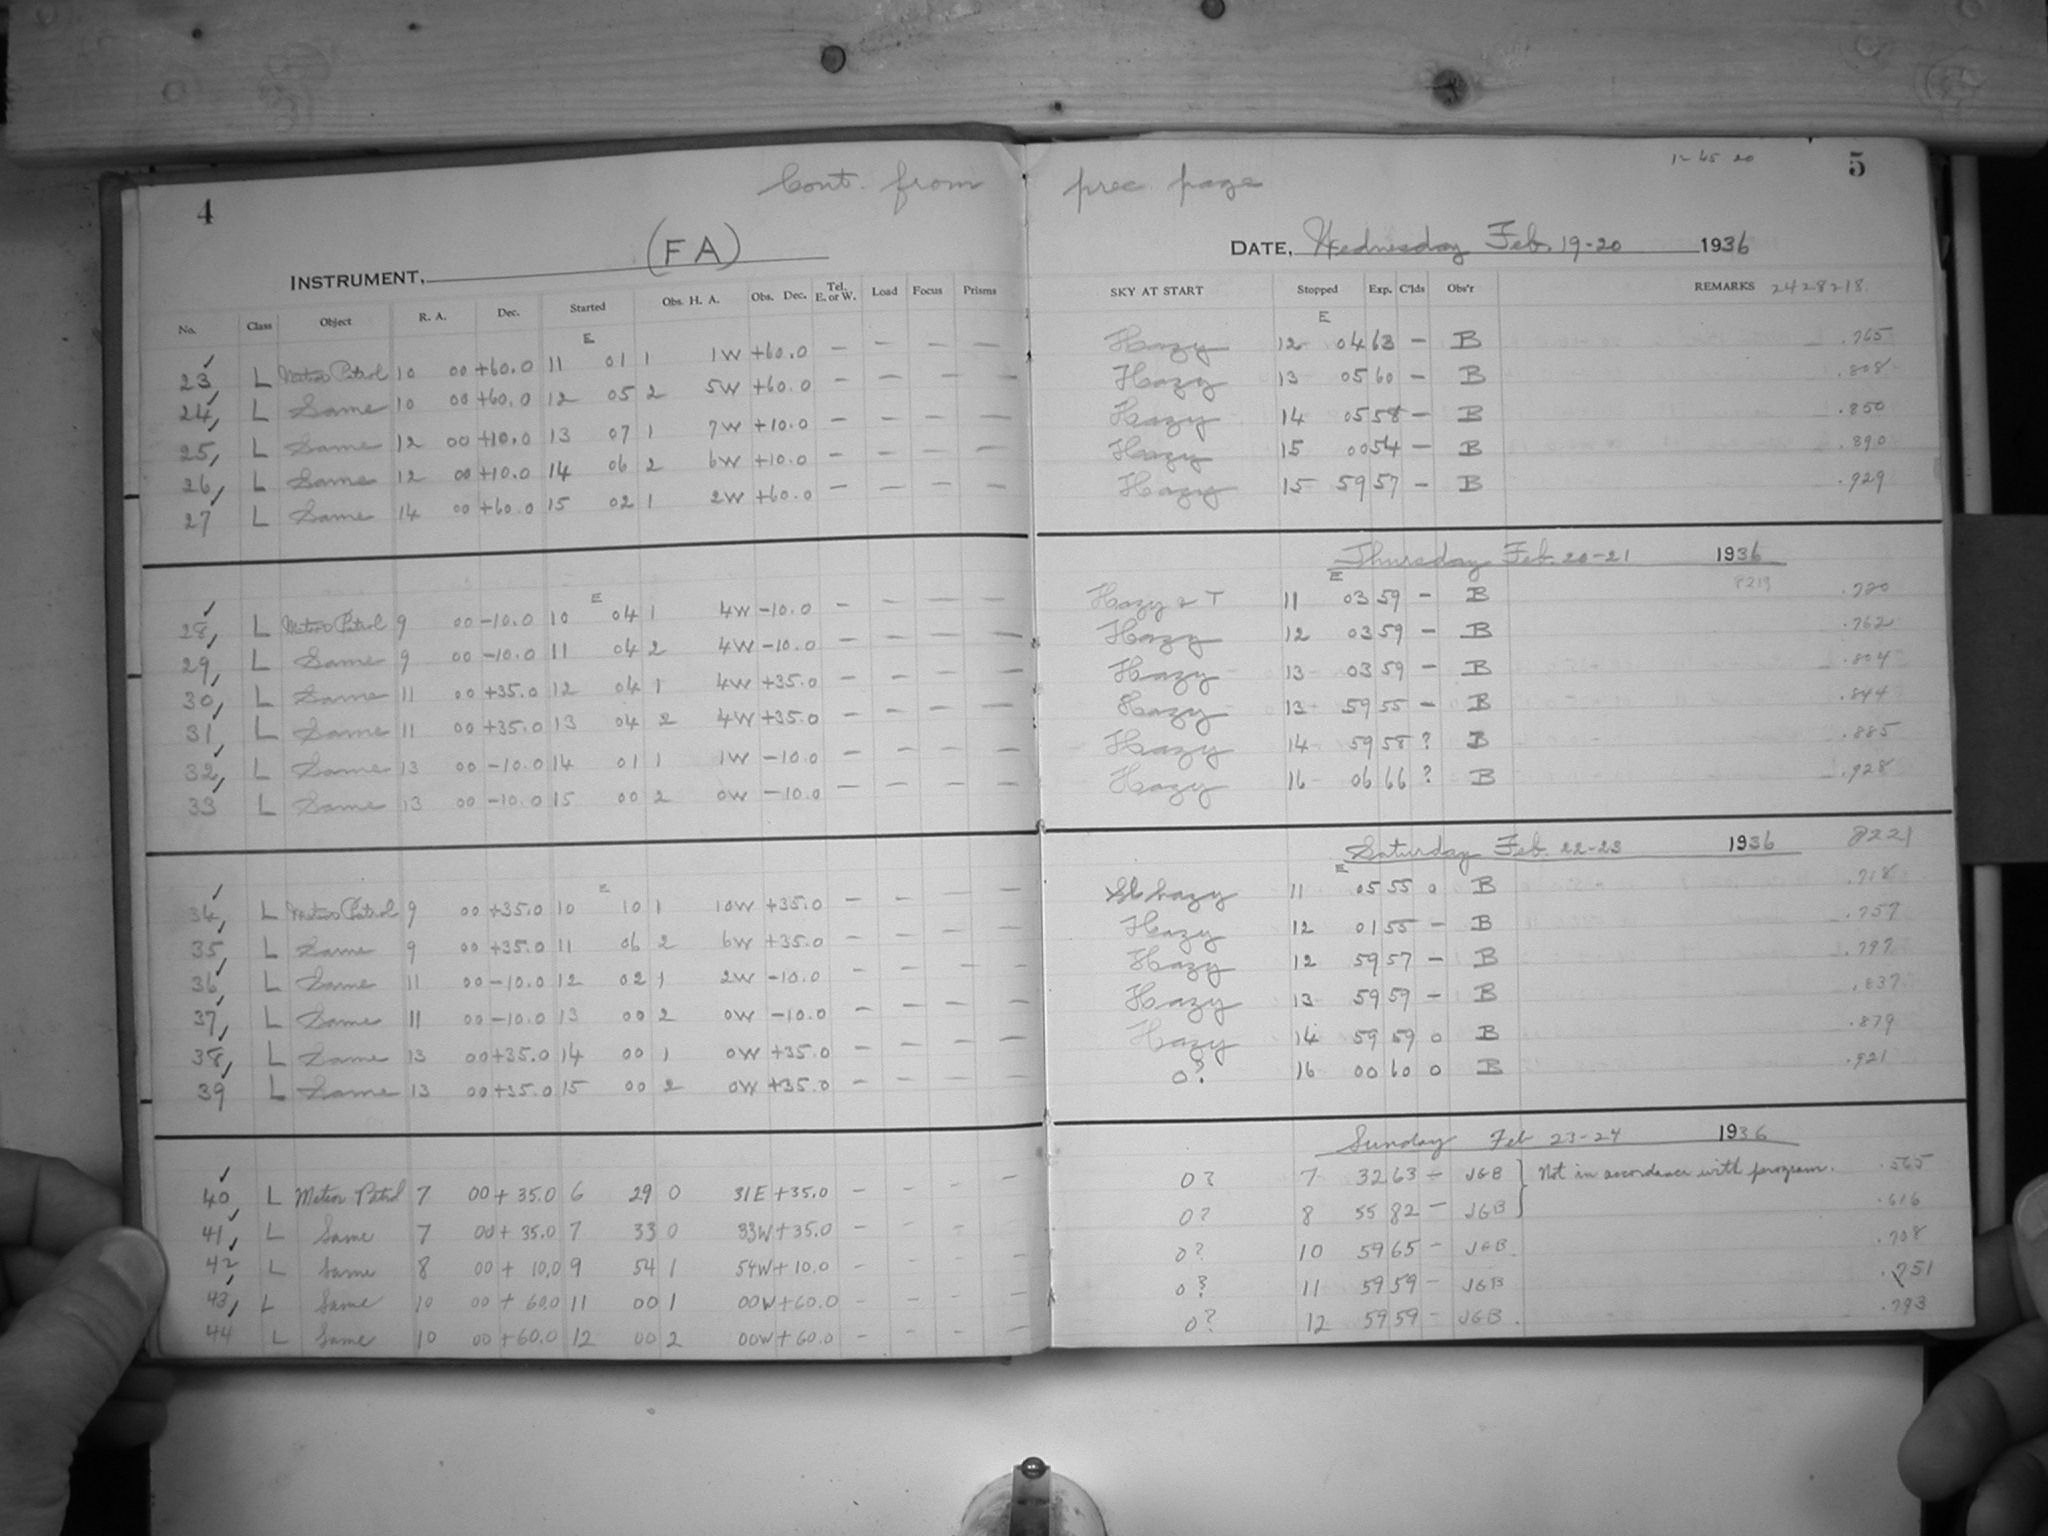 Cont. from prec. page
12 45 20
4
5
INSTRUMENT, (FA)
DATE, Wednesday Feb. 19-20 1936
No. Class Object R. A. Dec. Started Obs. H. A. Obs. Dec. Tel. E. or W. Load Focus Prisms SKY AT START Stopped Exp. C'lds Obs'r REMARKS 2428218.
E E
23 L Meteor Patrol 10 00 +60.0 11 01 1 1W +60.0 — — — — Hazy 12 04 63 — B .765
24 L Same 10 00 +60.0 12 05 2 5W +60.0 — — — — Hazy 13 05 60 — B .808
25 L Same 12 00 +10.0 13 07 1 7W +10.0 — — — — Hazy 14 05 58 — B .850
26 L Same 12 00 +10.0 14 06 2 6W +10.0 — — — — Hazy 15 00 54 — B .890
27 L Same 14 00 +60.0 15 02 1 2W +60.0 — — — — Hazy 15 59 57 — B .929
Thursday Feb. 20-21 1936
8219
E E
28 L Meteor Patrol 9 00 -10.0 10 04 1 4W -10.0 — — — — Hazy & T 11 03 59 — B .720
29 L Same 9 00 -10.0 11 04 2 4W -10.0 — — — — Hazy 12 03 59 — B .762
30 L Same 11 00 +35.0 12 04 1 4W +35.0 — — — — Hazy 13 03 59 — B .804
31 L Same 11 00 +35.0 13 04 2 4W +35.0 — — — — Hazy 13 59 55 — B .844
32 L Same 13 00 -10.0 14 01 1 1W -10.0 — — — — Hazy 14 59 58 ? B .885
33 L Same 13 00 -10.0 15 00 2 0W -10.0 — — — — Hazy 16 06 66 ? B .928
Saturday Feb. 22-23 1936 8221
E E
34 L Meteor Patrol 9 00 +35.0 10 10 1 10W +35.0 — — — — Sl hazy 11 05 55 0 B .718
35 L Same 9 00 +35.0 11 06 2 6W +35.0 — — — — Hazy 12 01 55 — B .757
36 L Same 11 00 -10.0 12 02 1 2W -10.0 — — — — Hazy 12 59 57 — B .797
37 L Same 11 00 -10.0 13 00 2 0W -10.0 — — — — Hazy 13 59 59 — B .837
38 L Same 13 00 +35.0 14 00 1 0W +35.0 — — — — Hazy 14 59 59 0 B .879
39 L Same 13 00 +35.0 15 00 2 0W +35.0 — — — — 0? 16 00 60 0 B .921
Sunday Feb 23-24 1936
40 L Meteor Patrol 7 00 +35.0 6 29 0 31E +35.0 — — — — 0? 7 32 63 — JGB Not in accordance with program. .565
41 L Same 7 00 +35.0 7 33 0 33W +35.0 — — — 0? 8 55 82 — JGB .616
42 L Same 8 00 +10.0 9 54 1 54W +10.0 — — — — 0? 10 59 65 — JGB. .708
43 L Same 10 00 +60.0 11 00 1 00W +60.0 — — — — 0? 11 59 59 — JGB .751
44 L Same 10 00 +60.0 12 00 2 00W +60.0 — — — — 0? 12 59 59 — JGB. .793